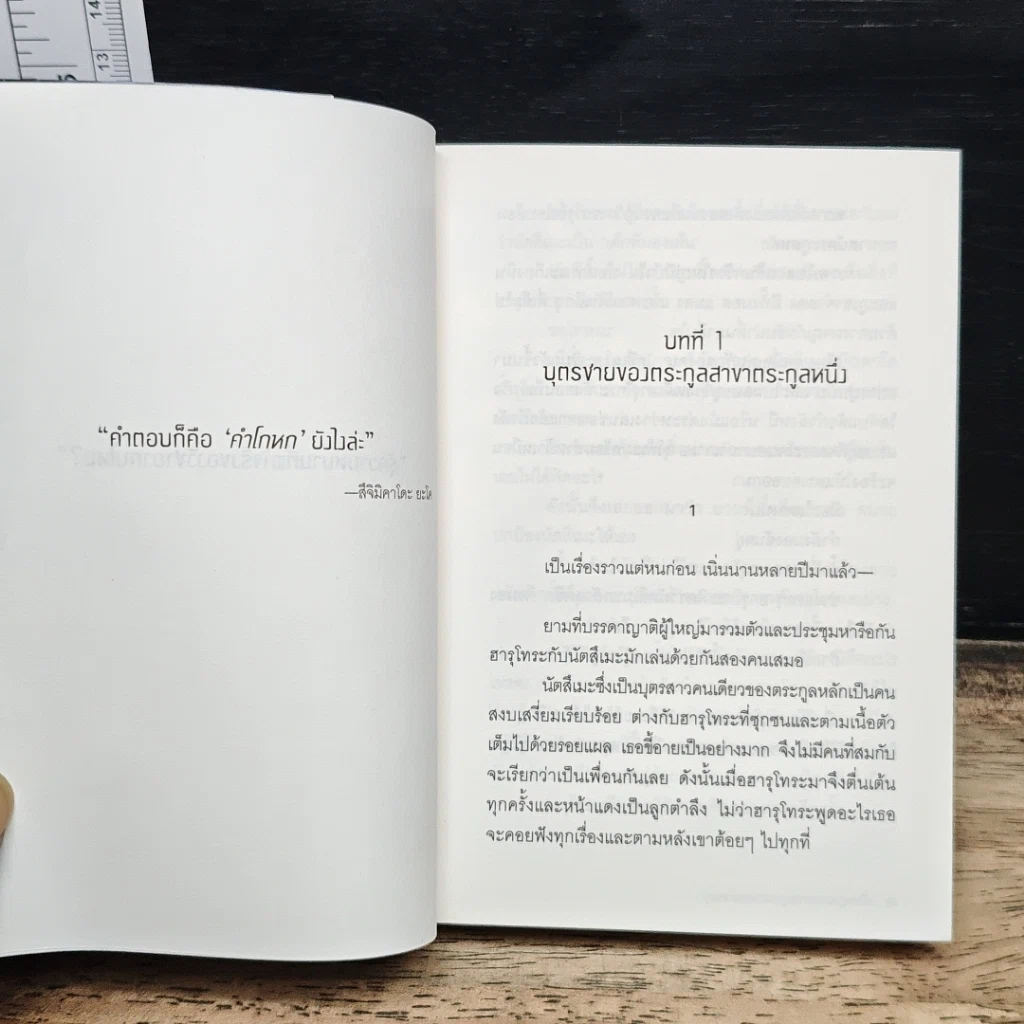 14
13
5
“คำตอบก็คือ ‘คำโกหก’ ยังไงล่ะ”
—สึจิมิคาโดะ
บทที่ 1
บุตรชายของตระกูลสาขาตระกูลหนึ่ง
1
เป็นเรื่องราวแต่หนก่อน เนิ่นนานหลายปีมาแล้ว—
ยามที่บรรดาญาติผู้ใหญ่มารวมตัวและประชุมหารือกัน
ฮารุโทระกับนัตสึเมะมักเล่นด้วยกันสองคนเสมอ
นัตสึเมะซึ่งเป็นบุตรสาวคนเดียวของตระกูลหลักเป็นคน
สงบเสงี่ยมเรียบร้อย ต่างกับฮารุโทระที่ซุกซนและตามเนื้อตัว
เต็มไปด้วยรอยแผล เธอขี้อายเป็นอย่างมาก จึงไม่มีคนที่สมกับ
จะเรียกว่าเป็นเพื่อนกันเลย ดังนั้นเมื่อฮารุโทระมาจึงตื่นเต้น
ทุกครั้งและหน้าแดงเป็นลูกตำลึง ไม่ว่าฮารุโทระพูดอะไรเธอ
จะคอยฟังทุกเรื่องและตามหลังเขาต้อยๆ ไปทุกที่